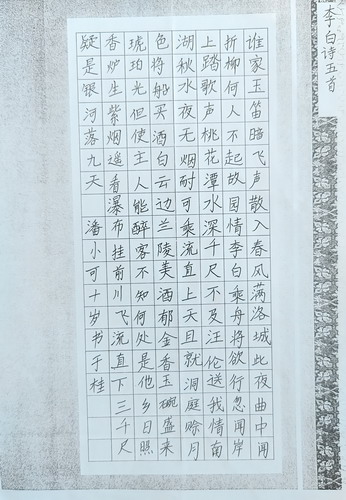 李白诗五首
谁家玉笛暗飞声散入春风满洛城此夜曲中闻
折柳何人不起故园情李白乘舟将欲行忽闻岸
上踏歌声桃花潭水深千尺不及汪伦送我情南
湖秋水夜无烟耐可乘流直上天且就洞庭赊月
色将船买酒白云边兰陵美酒郁金香玉碗盛来
琥珀光但使主人能醉客不知何处是他乡日照
香炉生紫烟遥看瀑布挂前川飞流直下三千尺
疑是银河落九天 潘小可十岁书于桂